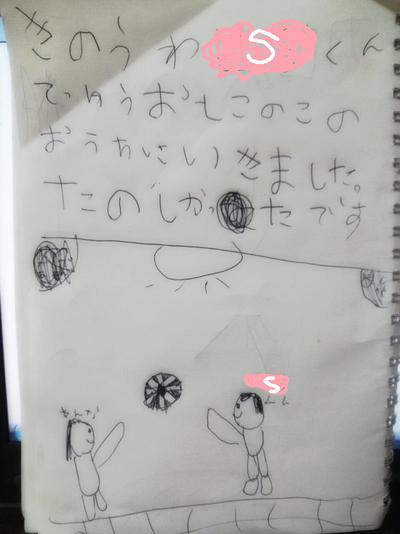 きのうわSくん
てゆうおとこのこの
おうちにいきました。
たのしかったです
S
くん